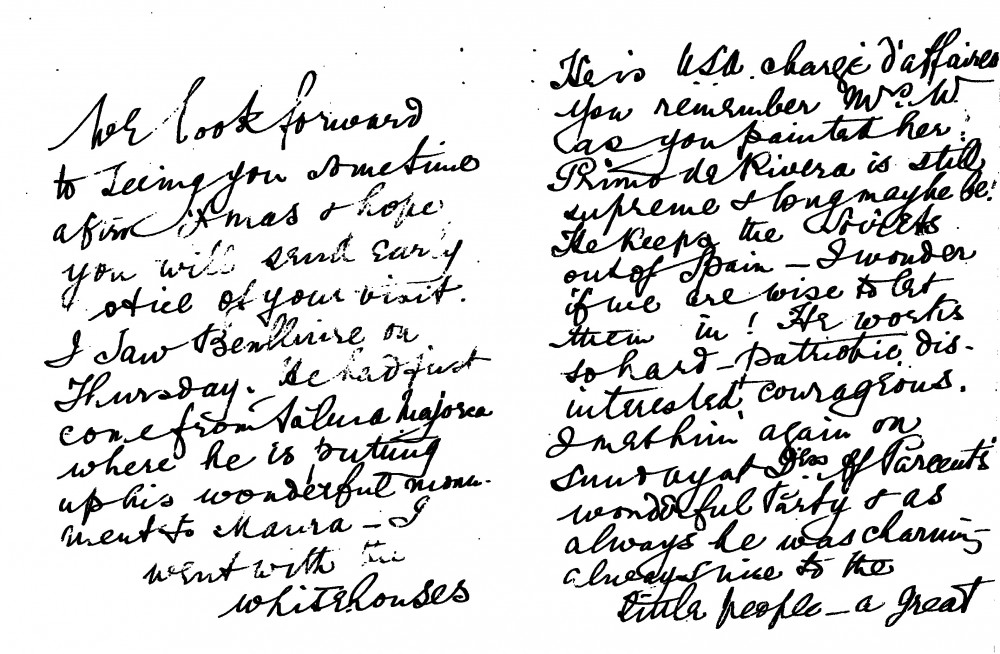 We look forward
to seeing you sometime
after Xmas & hope
you will send early
otice of your visit.
I saw Benlliure on
Thursday. He had just
come from Palma Majorca
where he is putting
up his wonderful monu-
ment to Maura – I
went with the
whitehouses
He is USA chargé d'affaires
you remember Mrs. W.
as you painted her.
Primo de Rivera is still
supreme & long may he be!
He keeps the Soviets
out of Spain – I wonder
if we are wise to let
them in! He works
so hard – patriotic, dis-
interested, courageous.
I met him again on
Sunday at Dss of Parcent's
wonderful Party & as
always he was charming
always nice to the
little people – a great